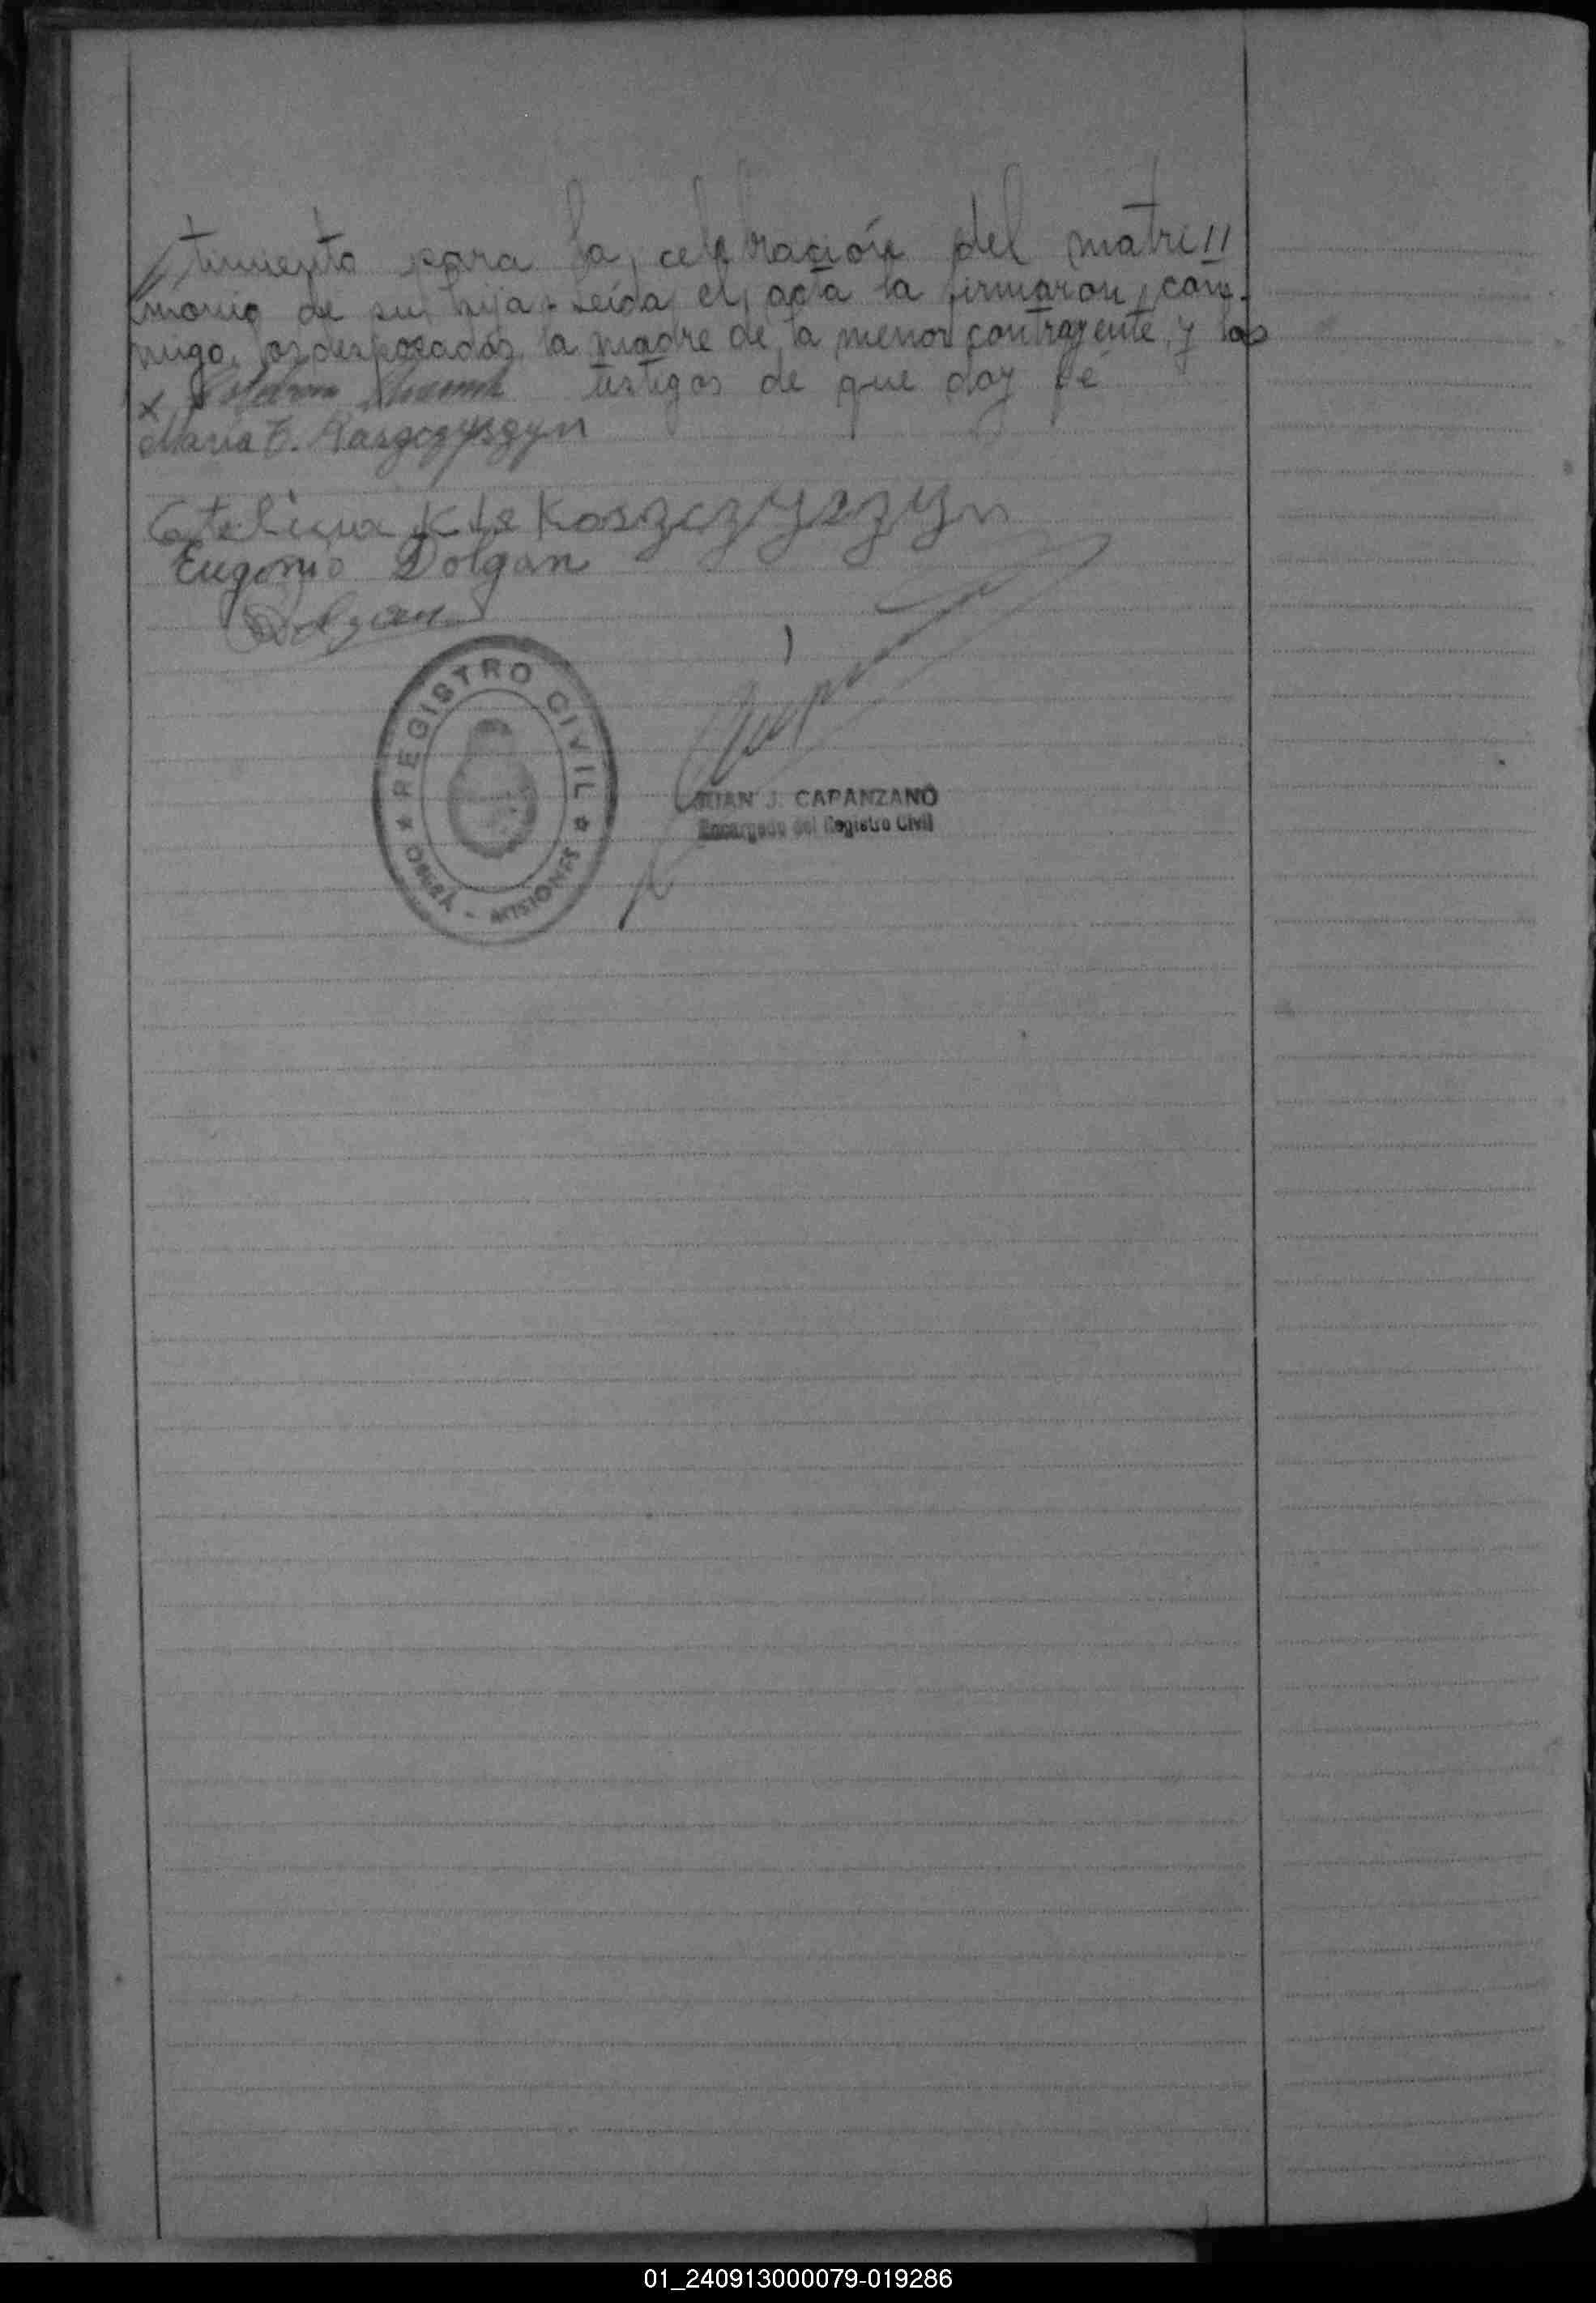 //timiento para la celebración del matri//
monio de su hija - Leída el acta la firmaron, con-
migo, los desposados, la madre de la menor contrayente, y los
x Esteban testigos de que doy fé
Maria E. Kaszczyszyn
K de Koszczyszyn
Eugenio Dolgan
Dolgan
REGISTRO CIVIL
OBERÁ - MISIONES
JUAN J. CAPANZANO
Encargado del Registro Civil
01_240913000079-019286